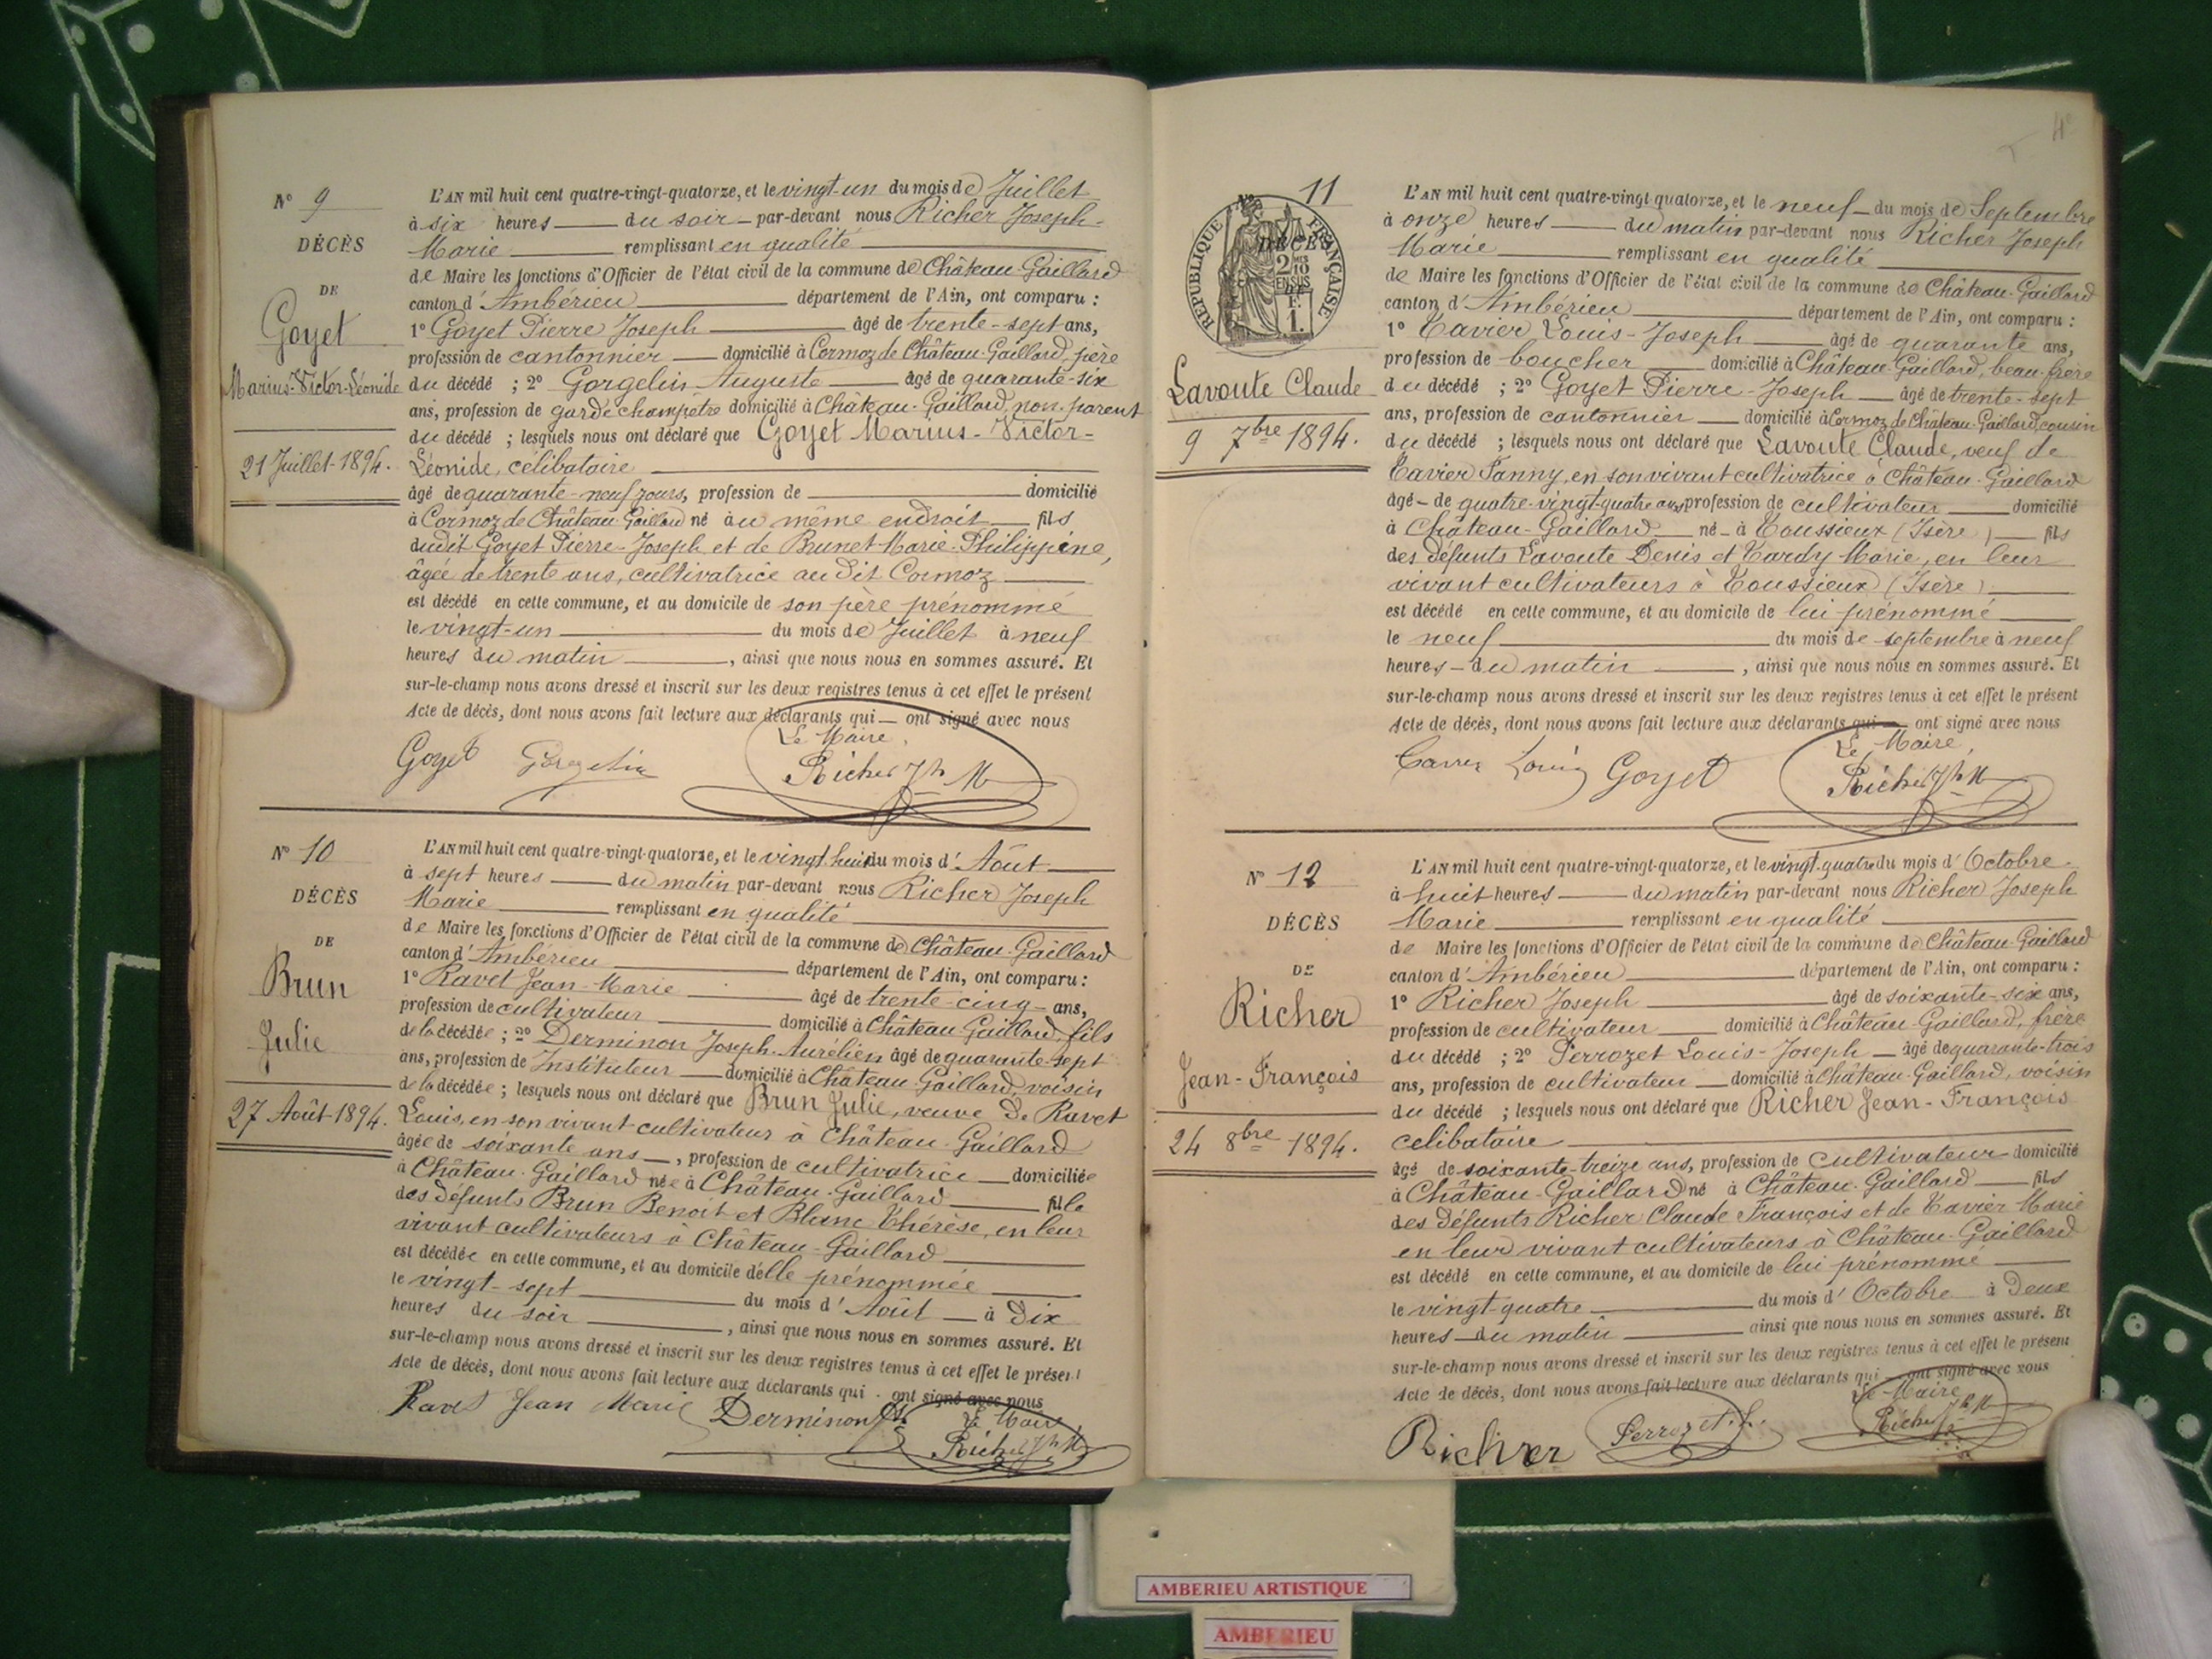 N° 9
DÉCÈS
DE
Goyet
Marius-Victor-Léonide
21 Juillet 1894.
L'AN mil huit cent quatre-vingt-quatorze, et le vingt-un du mois de Juillet
à six heures du soir par-devant nous Richer Joseph-
Marie remplissant en qualité
de Maire les fonctions d'Officier de l'état civil de la commune de Château-Gaillard
canton d'Ambérieu département de l'Ain, ont comparu :
1° Goyet Pierre Joseph âgé de trente-sept ans,
profession de cantonnier domicilié à Cormoz de Château-Gaillard, père
du décédé ; 2° Gorgelin Auguste âgé de quarante-six
ans, profession de garde champêtre domicilié à Château-Gaillard, non parent
du décédé ; lesquels nous ont déclaré que Goyet Marius-Victor-
Léonide, célibataire
âgé de quarante-neuf jours, profession de domicilié
à Cormoz de Château Gaillard né au même endroit fils
dudit Goyet Pierre-Joseph et de Brunet Marie-Philippine,
âgée de trente ans, cultivatrice au dit Cormoz
est décédé en cette commune, et au domicile de son père prénommé
le vingt-un du mois de Juillet à neuf
heures du matin , ainsi que nous nous en sommes assuré. Et
sur-le-champ nous avons dressé et inscrit sur les deux registres tenus à cet effet le présent
Acte de décès, dont nous avons fait lecture aux déclarants qui ont signé avec nous
Le Maire,
Goyet Gorgelin Richer Jh M
N° 10
DÉCÈS
DE
Brun
Julie
27 Août 1894.
L'AN mil huit cent quatre-vingt-quatorze, et le vingt-huit du mois d'Août
à sept heures du matin par-devant nous Richer Joseph
Marie remplissant en qualité
de Maire les fonctions d'Officier de l'état civil de la commune de Château-Gaillard
canton d'Ambérieu département de l'Ain, ont comparu :
1° Ravet Jean-Marie âgé de trente-cinq ans,
profession de cultivateur domicilié à Château Gaillard, fils
de la décédée ; 2° Derminon Joseph-Aurélien âgé de quarante-sept
ans, profession de Instituteur domicilié à Château-Gaillard, voisin
de la décédée ; lesquels nous ont déclaré que Brun Julie, veuve de Ravet
Louis, en son vivant cultivateur à Château-Gaillard
âgée de soixante ans , profession de cultivatrice domiciliée
à Château-Gaillard née à Château-Gaillard
des défunts Brun Benoit et Blanc Thérèse, en leur fille
vivant cultivateurs à Château-Gaillard
est décédée en cette commune, et au domicile d'elle prénommée
le vingt-sept du mois d'Août à Dix
heures du soir , ainsi que nous nous en sommes assuré. Et
sur-le-champ nous avons dressé et inscrit sur les deux registres tenus à cet effet le présent
Acte de décès, dont nous avons fait lecture aux déclarants qui ont signé avec nous
Le Maire
Ravet Jean Marie Derminon Richer Jh M
N° 11
RÉPUBLIQUE FRANÇAISE
DÉCÈS
2 10
EN SUS
DE
F.
1.
Lavoute Claude
9 7bre 1894.
L'AN mil huit cent quatre-vingt quatorze, et le neuf du mois de Septembre
à onze heures du matin par-devant nous Richer Joseph
Marie remplissant en qualité
de Maire les fonctions d'Officier de l'état civil de la commune de Château-Gaillard
canton d'Ambérieu département de l'Ain, ont comparu :
1° Tavier Louis-Joseph âgé de quarante ans,
profession de boucher domicilié à Château-Gaillard, beau-frère
du décédé ; 2° Goyet Pierre-Joseph âgé de trente-sept
ans, profession de cantonnier domicilié à Cormoz de Château-Gaillard, cousin
du décédé ; lesquels nous ont déclaré que Lavoute Claude, veuf de
Tavier Fanny, en son vivant cultivatrice à Château-Gaillard
âgé de quatre-vingt-quatre ans, profession de cultivateur domicilié
à Château-Gaillard né à Toussieux (Isère) fils
des défunts Lavoute Denis et Tardy Marie, en leur
vivant cultivateurs à Toussieux (Isère)
est décédé en cette commune, et au domicile de lui prénommé
le neuf du mois de septembre à neuf
heures du matin , ainsi que nous nous en sommes assuré. Et
sur-le-champ nous avons dressé et inscrit sur les deux registres tenus à cet effet le présent
Acte de décès, dont nous avons fait lecture aux déclarants qui ont signé avec nous
Le Maire,
Louis Goyet Richer Jh M
N° 12
DÉCÈS
DE
Richer
Jean-François
24 8bre 1894.
L'AN mil huit cent quatre-vingt-quatorze, et le vingt-quatre du mois d'Octobre
à huit heures du matin par-devant nous Richer Joseph
Marie remplissant en qualité
de Maire les fonctions d'Officier de l'état civil de la commune de Château-Gaillard
canton d'Ambérieu département de l'Ain, ont comparu :
1° Richer Joseph âgé de soixante-six ans,
profession de cultivateur domicilié à Château-Gaillard, frère
du décédé ; 2° Perrozet Louis-Joseph âgé de quarante-trois
ans, profession de cultivateur domicilié à Château-Gaillard, voisin
du décédé ; lesquels nous ont déclaré que Richer Jean-François
celibataire
âgé de soixante-treize ans, profession de cultivateur domicilié
à Château-Gaillard né à Château-Gaillard fils
des défunts Richer Claude François et de Tavier Marie
en leur vivant cultivateurs à Château-Gaillard
est décédé en cette commune, et au domicile de lui prénommé
le vingt-quatre du mois d'Octobre à Deux
heures du matin ainsi que nous nous en sommes assuré. Et
sur-le-champ nous avons dressé et inscrit sur les deux registres tenus à cet effet le présent
Acte de décès, dont nous avons fait lecture aux déclarants qui ont signé avec nous
Le Maire
Richer Perrozet L. Richer Jh M
AMBERIEU ARTISTIQUE
AMBERIEU